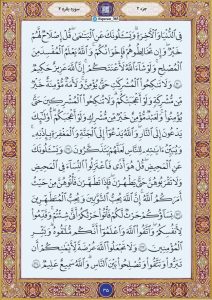 جزء ۲
سوره بقره ۲
فِي ٱلدُّنْيَا وَٱلْأَخِرَةِ وَيَسْـَٔلُونَكَ عَنِ ٱلْيَتَٰمَىٰ قُلْ إِصْلَاحٌ لَّهُمْ
خَيْرٌ وَإِن تُخَالِطُوهُمْ فَإِخْوَٰنُكُمْ وَٱللَّهُ يَعْلَمُ ٱلْمُفْسِدَ مِنَ
ٱلْمُصْلِحِ وَلَوْ شَآءَ ٱللَّهُ لَأَعْنَتَكُمْ إِنَّ ٱللَّهَ عَزِيزٌ حَكِيمٌ
وَلَا تَنكِحُوا۟ ٱلْمُشْرِكَٰتِ حَتَّىٰ يُؤْمِنَّ وَلَأَمَةٌ مُّؤْمِنَةٌ خَيْرٌ
مِّن مُّشْرِكَةٍ وَلَوْ أَعْجَبَتْكُمْ وَلَا تُنكِحُوا۟ ٱلْمُشْرِكِينَ حَتَّىٰ
يُؤْمِنُوا۟ وَلَعَبْدٌ مُّؤْمِنٌ خَيْرٌ مِّن مُّشْرِكٍ وَلَوْ أَعْجَبَكُمْ أُو۟لَٰٓئِكَ
يَدْعُونَ إِلَى ٱلنَّارِ وَٱللَّهُ يَدْعُوٓا۟ إِلَى ٱلْجَنَّةِ وَٱلْمَغْفِرَةِ بِإِذْنِهِۦ
وَيُبَيِّنُ ءَايَٰتِهِۦ لِلنَّاسِ لَعَلَّهُمْ يَتَذَكَّرُونَ وَيَسْـَٔلُونَكَ
عَنِ ٱلْمَحِيضِ قُلْ هُوَ أَذًى فَٱعْتَزِلُوا۟ ٱلنِّسَآءَ فِي ٱلْمَحِيضِ
وَلَا تَقْرَبُوهُنَّ حَتَّىٰ يَطْهُرْنَ فَإِذَا تَطَهَّرْنَ فَأْتُوهُنَّ مِنْ حَيْثُ
أَمَرَكُمُ ٱللَّهُ إِنَّ ٱللَّهَ يُحِبُّ ٱلتَّوَّٰبِينَ وَيُحِبُّ ٱلْمُتَطَهِّرِينَ
نِسَآؤُكُمْ حَرْثٌ لَّكُمْ فَأْتُوا۟ حَرْثَكُمْ أَنَّىٰ شِئْتُمْ وَقَدِّمُوا۟
لِأَنفُسِكُمْ وَٱتَّقُوا۟ ٱللَّهَ وَٱعْلَمُوٓا۟ أَنَّكُم مُّلَٰقُوهُ وَبَشِّرِ
ٱلْمُؤْمِنِينَ وَلَا تَجْعَلُوا۟ ٱللَّهَ عُرْضَةً لِّأَيْمَٰنِكُمْ أَن
تَبَرُّوا۟ وَتَتَّقُوا۟ وَتُصْلِحُوا۟ بَيْنَ ٱلنَّاسِ وَٱللَّهُ سَمِيعٌ عَلِيمٌ
۳۵